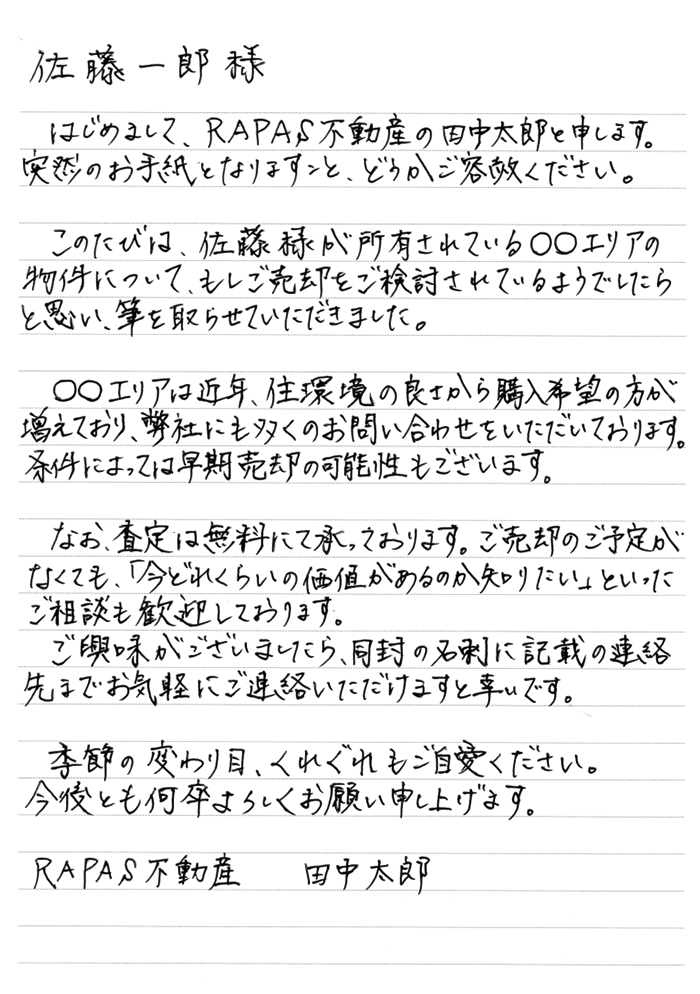 佐藤一郎様
はじめまして、RAPAS不動産の田中太郎と申します。
突然のお手紙となりますこと、どうかご容赦ください。
このたびは、佐藤様が所有されている〇〇エリアの
物件について、もしご売却をご検討されているようでしたら
と思い、筆を取らせていただきました。
〇〇エリアは近年、住環境の良さから購入希望の方が
増えており、弊社にも多くのお問い合わせをいただいております。
条件によっては早期売却の可能性もございます。
なお、査定は無料にて承っております。ご売却のご予定が
なくても、「今どれくらいの価値があるのか知りたい」といった
ご相談も歓迎しております。
ご興味がございましたら、同封の名刺に記載の連絡
先までお気軽にご連絡いただけますと幸いです。
季節の変わり目、くれぐれもご自愛ください。
今後とも何卒よろしくお願い申し上げます。
RAPAS不動産　　田中太郎